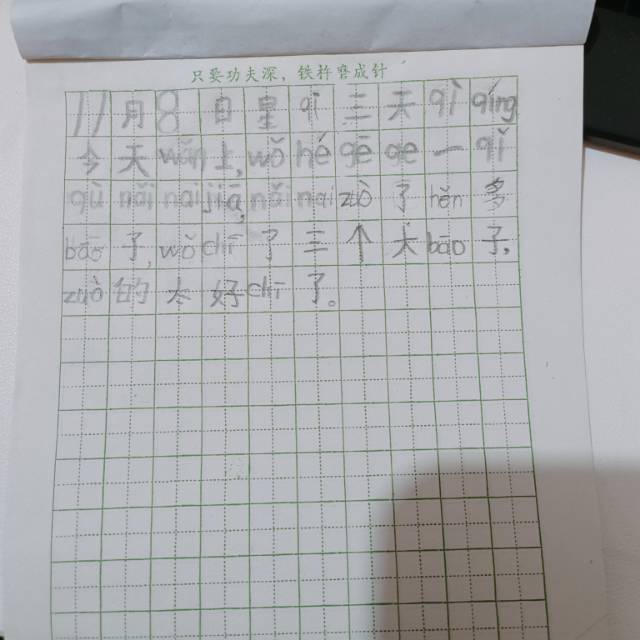 只要功夫深，铁杵磨成针
11月8日星qī三天qì qíng
今天wǎn上,wǒ hé gē ge一qǐ
qù nǎi nai jiā,nǎi nai zuò了hěn多
bāo子,wǒ chī了三个大bāo子,
zuò的太好chī了。